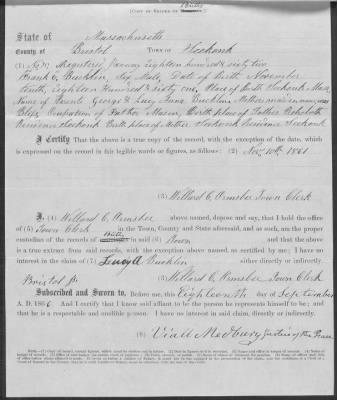 [COPY OF RECORD OF Births]
State of Massachusetts
County of Bristol Town of Seekonk
(1) No. Registered January Eighteen hundred & sixty two
Frank E. Bucklin, Sex Male, Date of Birth November
tenth, Eighteen Hundred & Sixty one, Place of Birth Seekonk Mass
Name of Parents George B & Lucy Anna Bucklin, Mothers maiden name was
Bliss Occupation of Father Mason, Birth place of Father Rehoboth
Residence Seekonk Birth place of Mother Seekonk Residence Seekonk
I Certify That the above is a true copy of the record, with the exception of the date, which
is expressed on the record in fair legible words or figures, as follows: (2) Nov 10th 1861
(3) Willard C. Ormsbee Town Clerk
I, (4) Willard C. Ormsbee above named, depose and say, that I hold the office
of (5) Town Clerk in the Town, County and State aforesaid, and as such, am the proper
custodian of the records of Births in said (6) Town and that the above
is a true extract from said records, with the exception above named, as certified by me; I have no
interest in the claim of (7) Lucy A Bucklin either directly or indirectly.
Bristol ss. (3) Willard C. Ormsbee Town Clerk
Subscribed and Sworn to, Before me, this Eighteenth day of September
A. D. 186 And I certify that I know said affiant to be the person he represents himself to be; and
that he is a respectable and credible person. I have no interest in said claim, directly or indirectly.
(8) Viall Medbury Justice of the Peace